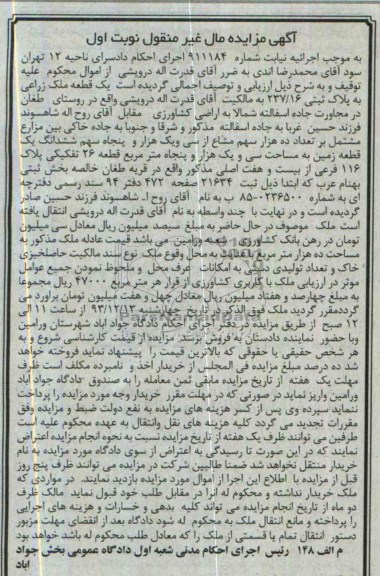 آگهی مزایده مال غیر منقول نوبت اول
به موجب اجرائیه نیابت شماره ۹۱۱۱۸۴ اجرای احکام دادسرای ناحیه ۱۲ تهران
سود آقای محمدرضا اندی به ضرر آقای قدرت اله درویشی از اموال محکوم علیه
توقیف و به شرح ذیل ارزیابی و توصیف اجمالی گردیده است یک قطعه ملک زراعی
به پلاک ثبتی ۲۳۷/۱۶ به مالکیت آقای قدرت اله درویشی واقع در روستای طغان
در مجاورت جاده اسفالته شمالا به اراضی کشاورزی مقابل آقای روح اله شاهسوند
فرزند حسین غربا به جاده اسفالته مذکور و شرقا و جنوبا به جاده خاکی بین مزارع
مشتمل بر تعداد ده هزار سهم مشاع از سی ویک هزار و پنجاه سهم ششدانگ یک
قطعه زمین به مساحت سی و یک هزار و پنجاه متر مربع قطعه ۲۶ تفکیکی پلاک
۱۱۶ فرعی از بیست و هفت اصلی مذکور واقع در قریه طغان خالصه بخش ثبتی
بهنام عرب که ابتدا ذیل ثبت ۲۱۶۳۴ صفحه ۴۷۲ دفتر ۹۴ سند رسمی دفترچه
ای به شماره ۰۲۳۶۵۰۰-۸۵ ب به نام آقای روح ا.. شاهسوند فرزند حسین صادر
گردیده است و در نهایت با چند واسطه به نام آقای قدرت اله درویشی انتقال یافته
است ملک موصوف در حال حاضر به مبلغ سیصد میلیون ریال معادل سی میلیون
تومان در رهن بانک کشاورزی شعبه ورامین می باشد قیمت عادله ملک مذکور به
مساحت ده هزار متر مربع با عنایت به محل وقوع ملک نوع سند مالکیت حاصلخیزی
خاک و تعداد تولیدی دسترسی به امکانات عرف محل و ملحوظ نمودن جمیع عوامل
موثر در ارزیابی ملک با کاربری کشاورزی از قرار هر متر مربع ۴۷۰۰۰ ریال مجموعا
به مبلغ چهارصد و هفتاد میلیون ریال معادل چهل و هفت میلیون تومان براورد می
گرددمقرر گردید ملک فوق الذکر در تاریخ چهارشنبه ۹۳/۱۲/۱۳ از ساعت ۱۱ الی
۱۲ صبح از طریق مزایده در دفتر اجرای احکام دادگاه جواد اباد شهرستان ورامین
وبا حضور نماینده دادستان به فروش برسد مزایده از قیمت کارشناسی شروع و به
هر شخص حقیقی یا حقوقی که بالاترین قیمت را پیشنهاد نماید فروخته خواهد
شد ده درصد مبلغ مزایده فی المجلس از خریدار اخذ و نامبرده مکلف است ظرف
مهلت یک هفته از تاریخ مزایده مابقی ثمن معامله را به صندوق دادگاه جواد آباد
ورامین واریز نماید در صورتی که در مهلت مقرر خریدار وجه مورد مزایده را پرداخت
ننماید سپرده وی پس از کسر هزینه های مزایده به نفع دولت ضبط و مزایده وفق
مقررات تجدید می گردد کلیه هزینه های نقل وانتقال به عهده محکوم علیه است
طرفین می توانند ظرف یک هفته از تاریخ مزایده نسبت به نحوه انجام مزایده اعتراض
نمایند که در این صورت تا رسیدگی به اعتراض از سوی دادگاه مورد مزایده به نام
خریدار منتقل نخواهد شد ضمنا طالبین شرکت در مزایده می توانند ظرف پنج روز
قبل از مزایده با اطلاع این اجرا از اموال مورد مزایده بازدید نمایند. در مواردی که
ملک خریدار نداشته و محکوم له آنرا در مقابل طلب خود قبول نماید مالک ظرف
دو ماه از تاریخ انجام مزایده می تواند کلیه بدهی و خسارات و هزینه های اجرایی
را پرداخته و مانع انتقال ملک به محکوم له شود دادگاه بعد از انقضای مهلت مزبور
دستور انتقال تمام یا قسمتی از ملک را که معادل طلب محکوم له باشد خواهد بود
م الف ۱۴۸ رئیس اجرای احکام مدنی شعبه اول دادگاه عمومی بخش جواد
اباد